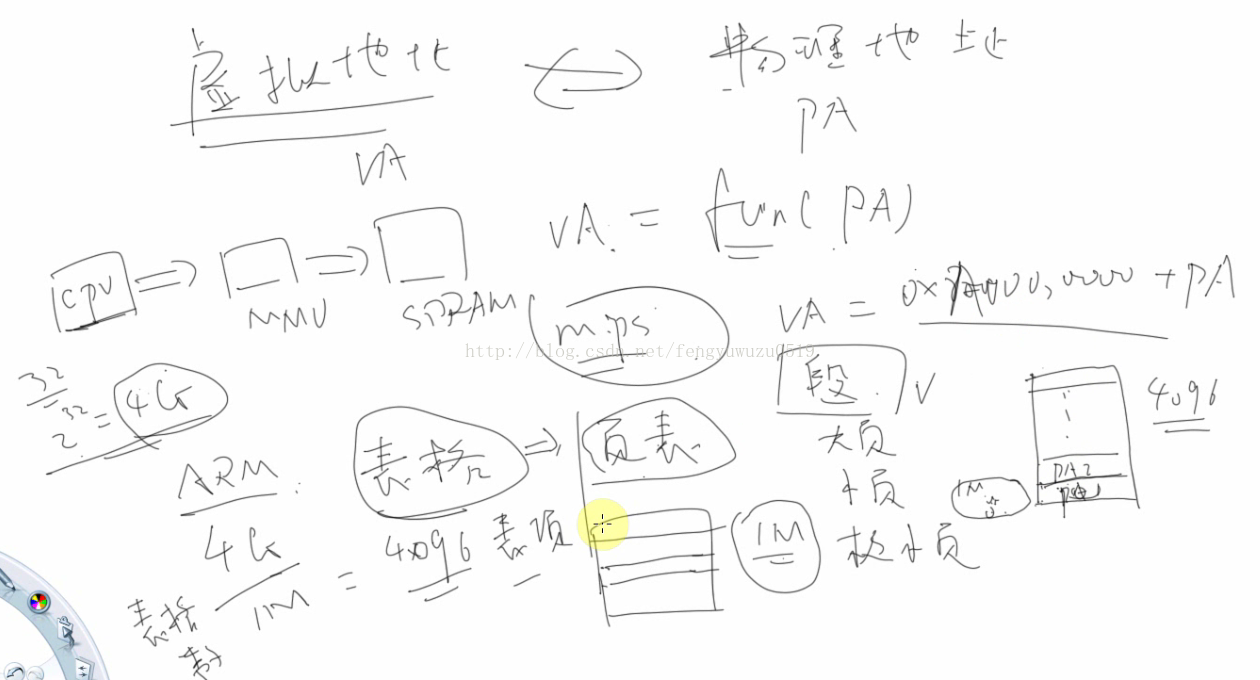 虚拟地址
物理地址
VA
PA
VA = fun( PA)
CPU
MMU
SDRAM
mips
+ PA
VA =
http://blog.csdn.net/fengyuwuzu0519
32
2^32 = 4G
段
V
4096
表格
页表
大页
PA2
ARM
小页
1M
4G
4096 表项
1M
极小页
1M
=
表格